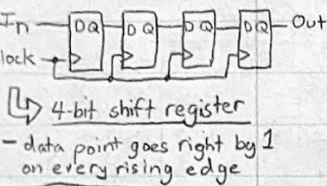 In DQ DQ DQ DQ Out
lock
4-bit shift register
- data point goes right by 1
on every rising edge